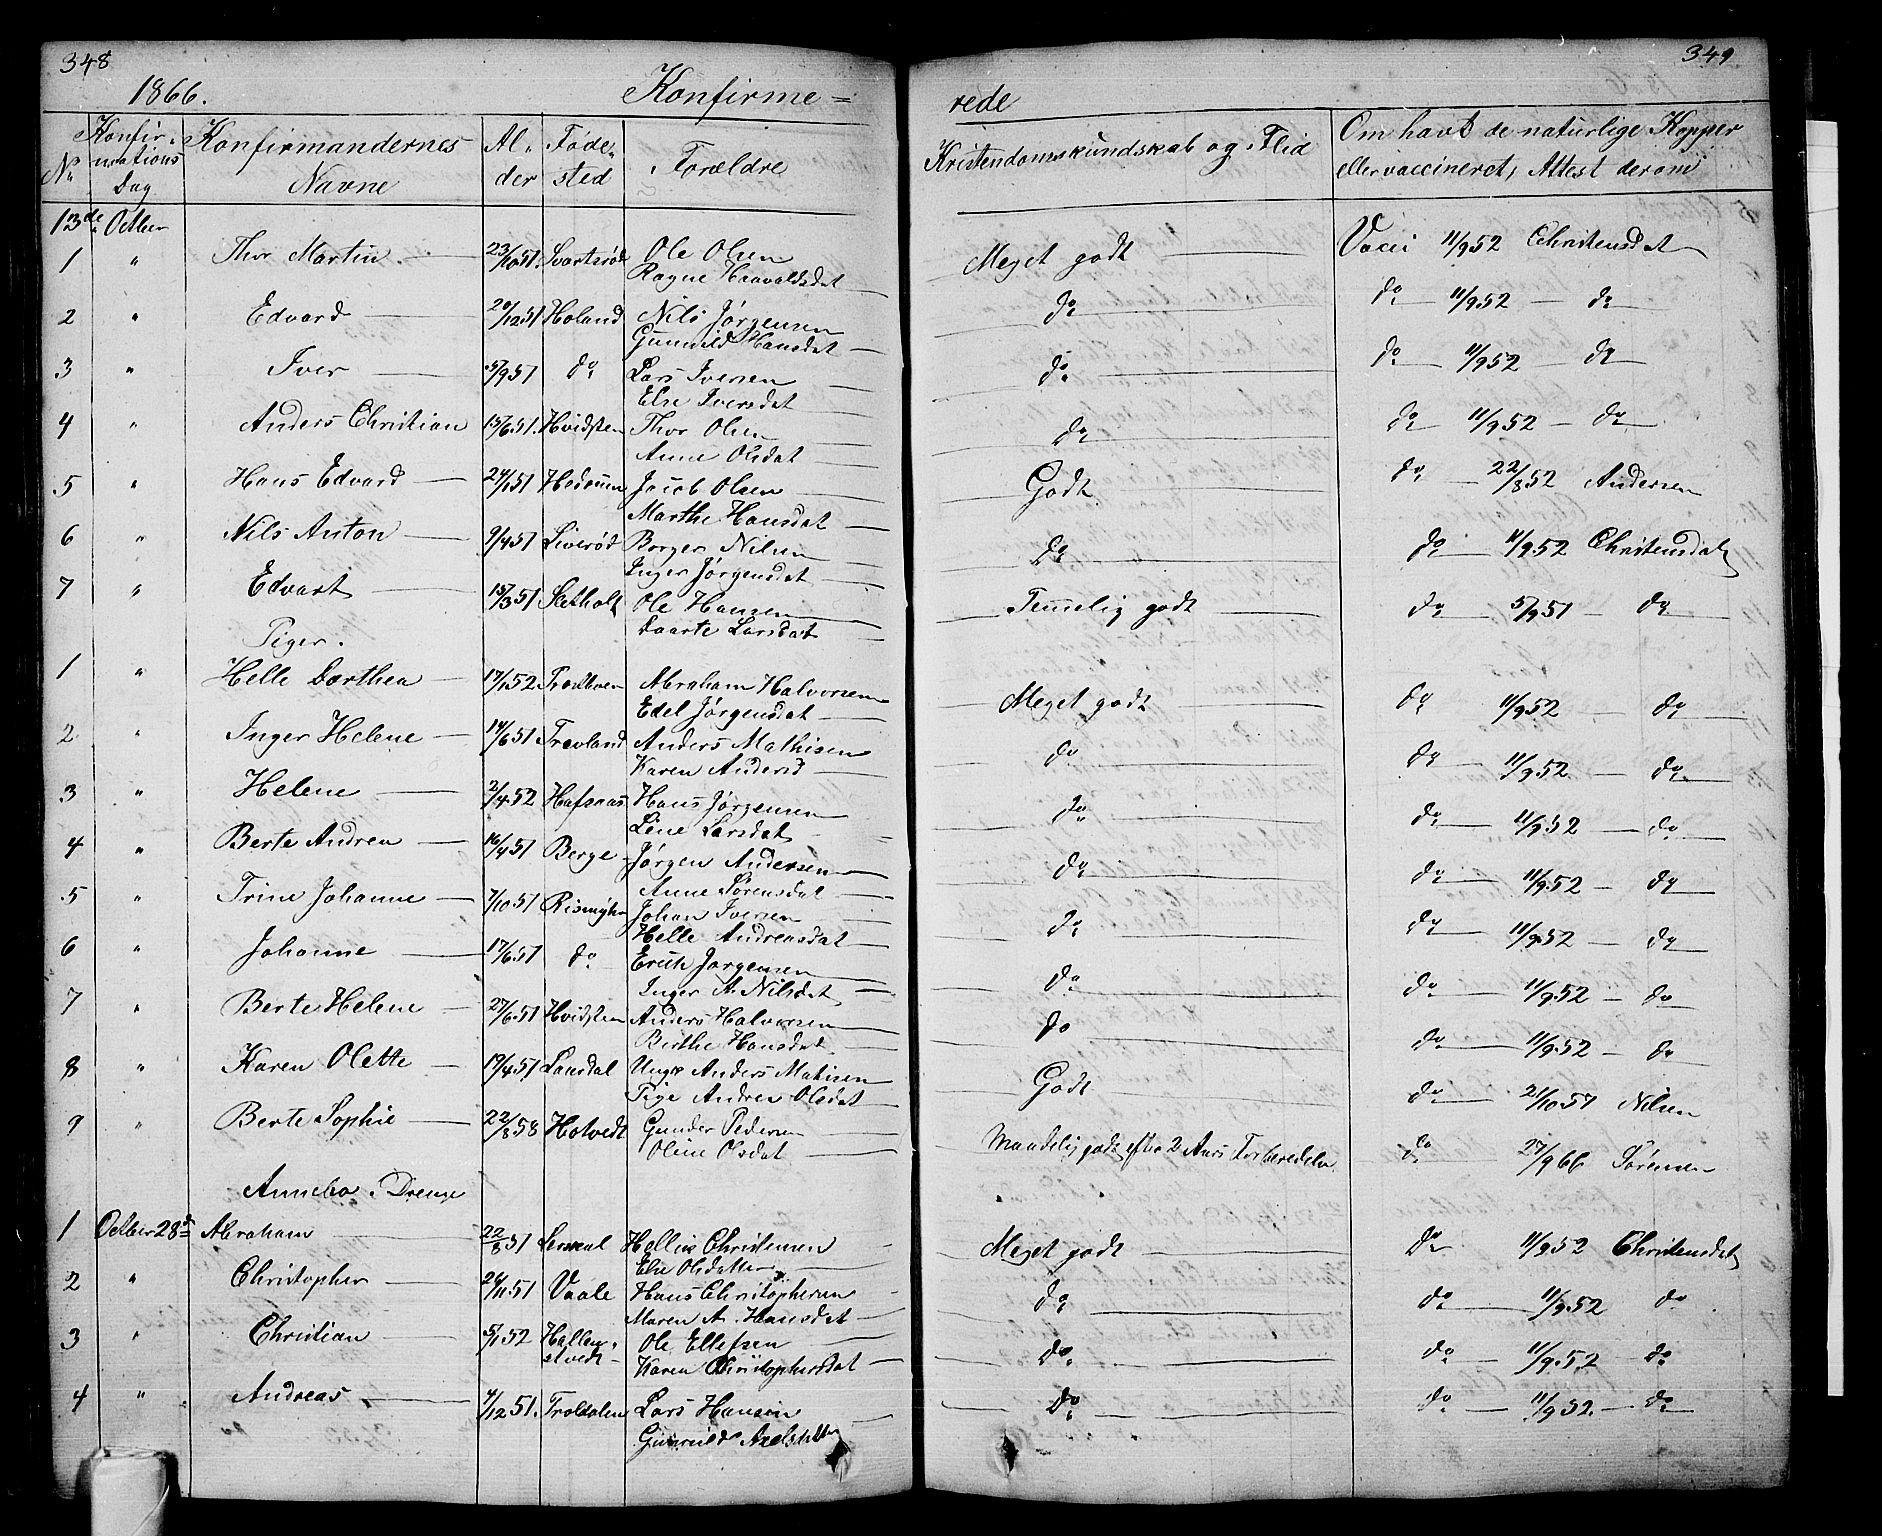 348
1866. Konfirme=
No Konfirmations Dag Konfirmandernes Navne Alder Fødested Forældre
13de October
1 " Thor Martin 23/10 51. Svartsrød Ole Olsen
Ragne Haavaldsdat
2 " Edvard 20/12 51 Holand Nils Jørgensen
Gunnild Hansdat
3 " Iver 5/9 51 do Lars Iversen
Else Iversdat
4 " Anders Christian 15/6 51. Hvidsten Thor Olsen
Anne Olsdat
5 " Hans Edvard 24/1 51 Jacob Olsen
Marthe Hansdat
6 " Nils Anton 9/4 51 Liverød Borger Nilsen
Inger Jørgensdat
7 " Edvart 15/3 51 Ole Hansen
Daarte Larsdat
Piger.
1 " Helle Dorthea 17/1 52 Abraham Halvorsen
Edel Jørgensdat
2 " Inger Helene 14/6 51 Trevland Anders Mathisen
Karen Andersd
3 " Helene 2/4 52 Hafsnas Hans Jørgensen
Line Larsdat
4 " Berte Andrea 16/4 51 Berge Jørgen Andersen
Anne Sørensdat
5 " Trine Johanne 7/10 51 Johan Iversen
Helle Andreasdat
6 " Johanne 17/6 51 do Erich Jørgensen
Inger A. Nilsdat
7 " Berte Helene 27/6 51 Hvidsten Anders Halvorsen
Birthe Hansdat
8 " Karen Olette 19/4 51 Lansdal Ungk Anders Matisen
Pige Andrea Olsdat
9 " Berte Sophie 22/8 58 Hotvedt Gunder Pedersen
Oline Olsdat
Annebo. Drenge
1 October 28de Abraham 22/8 51 Hellik Christensen
Else Olsdatter
2 " Christopher 24/11 51 Vaale Hans Christophersen
Maren A. Hansdat
3 " Christian 5/1 52 Hallenstvedt Ole Ellefsen
Karen Christophersdat
4 " Andreas 4/12 51. Troldalen Lars Hansen
Gunnild Axelsdatter
349
rede
Kristendomskundskab og Flid Om havt de naturlige Kopper
eller vaccineret, Attest derom
Meget godt Vacci 11/9 52 Christensdat
do do 11/9 52 do
do do 11/9 52 do
do do 11/9 52 do
Godt do 22/8 52 Andersen
do do 11/9 52 Christensdat
Temmelig godt do 5/9 51 do
Meget godt do 11/9 52 do
do do 11/9 52 do
do do 11/9 52 do
do do 11/9 52 do
do do 11/9 52 do
do do 11/9 52 do
do do 11/9 52 do
Godt do 21/10 57 Nilsen
Maadelig godt efter 2 Aars Forberedelse do 27/9 66 Sørensen
Meget godt do 11/9 52 Christensdat
do do 11/9 52 do
do do 11/9 52 do
do do 11/9 52. do